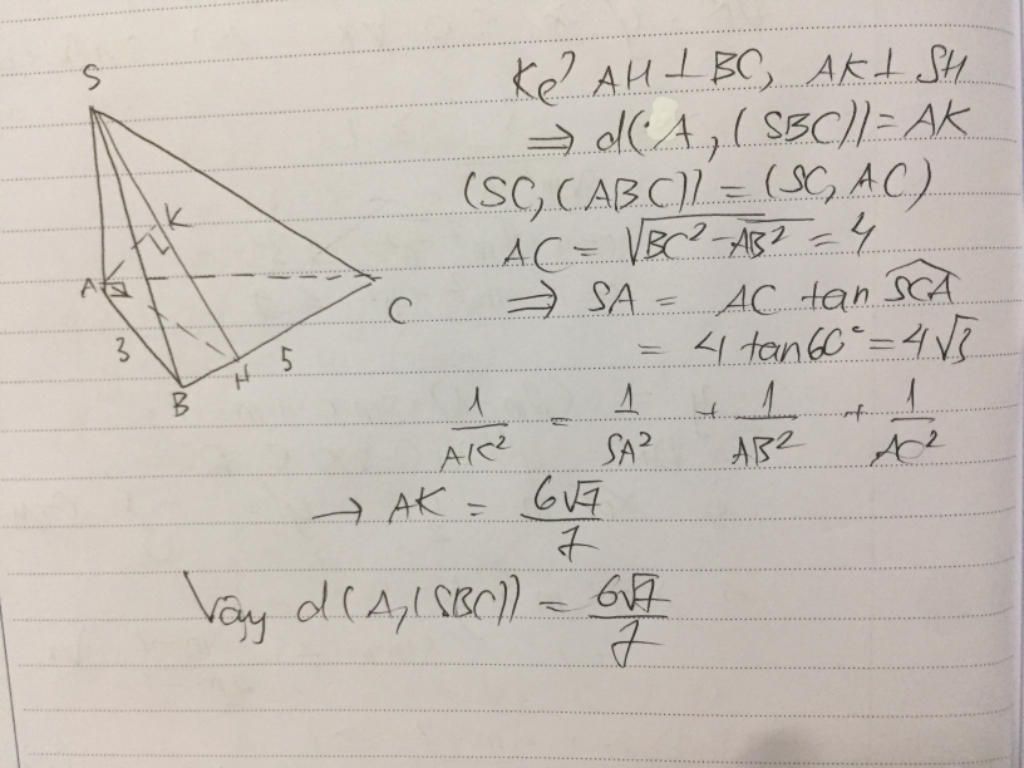 S
Kẻ AH ⊥ BC, AK ⊥ SH
⇒ d(A, (SBC)) = AK
(SC, (ABC)) = (SC, AC)
K
AC = √(BC² - AB²) = 4
A
C
⇒ SA = AC tan SCA
3
H
5
= 4 tan60° = 4√3
B
1/AK² = 1/SA² + 1/AB² + 1/AC²
→ AK = 6√7/7
Vậy d(A, (SBC)) = 6√7/7